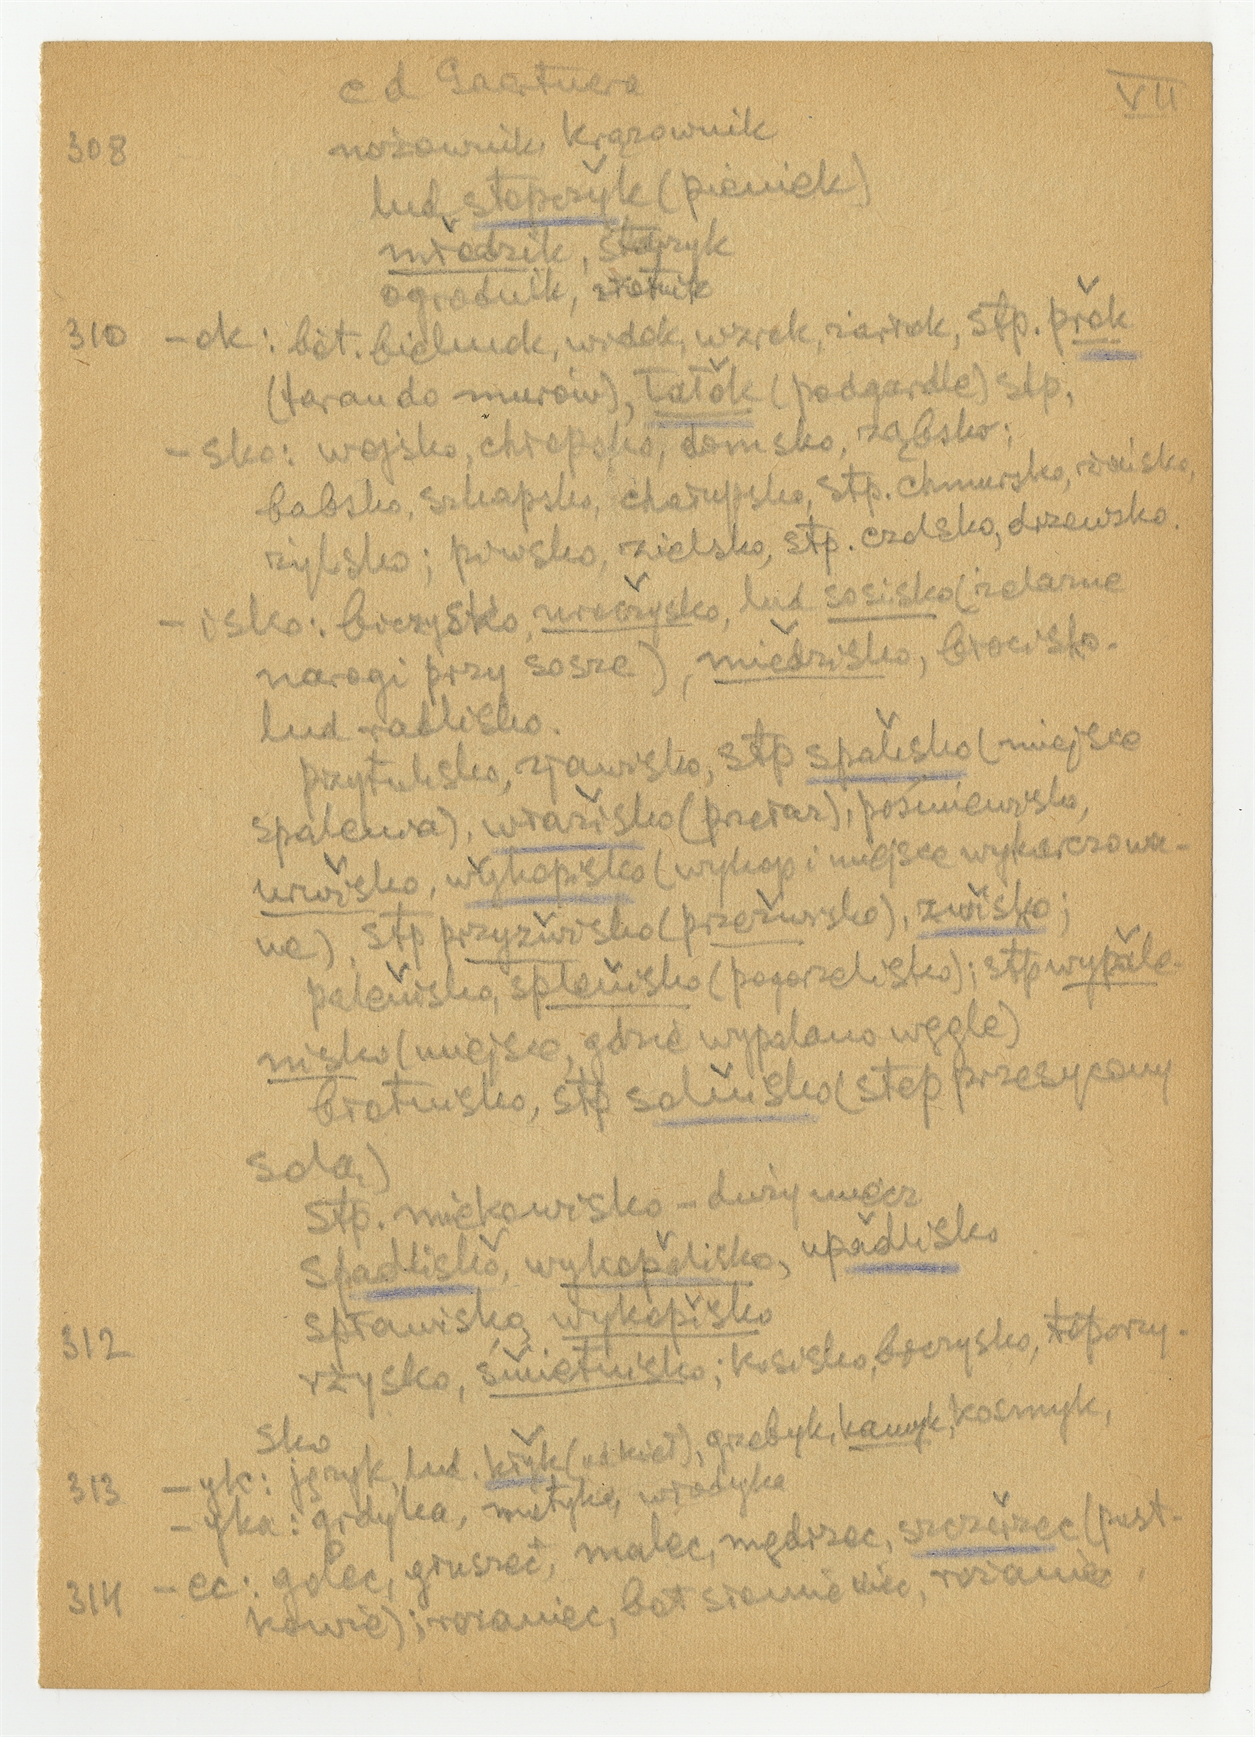 c d Gaertnera VII
308 nożownik, krązownik
lud, stopczyk (pieniek)
młodzik, stajzyk
ogrodnik, złotnik
310 - ok: bot. bielmok, widok, wzrok, żarłok, stp. prok
(taran do murów), tałok (podgardle) stp.
- sko: wojsko, chłopsko, domsko, ząbsko;
babsko, szkapsko, chałupsko, stp. chmursko,
żylsko; piwsko, zielsko, stp. czolsko, drzewsko.
- isko: biczysko, uroczysko, lud sosisko (żelazne
narogi przy sosze), miedzisko, błocisko.
lud radlisko.
przytulisko, zjawisko, stp spalisko (miejsce
spalenia), włazisko (przełaz), pośmiewisko,
urwisko, wykopisko (wykop i miejsce wykarczowa-
ne), stp przyzwisko (przezwisko), zwisko;
paleńisko, spleńisko (pogorzelisko); stp wypale-
nisko (miejsce, gdzie wypalano węgle)
błotnisko, stp solnisko (step przesycony
solą)
stp. mieczowisko - duży miecz
spadlisko, wykopalisko, upadlisko
spławisko, wykopisko
312 rżysko, śmietnisko; kosisko, biczysko, toporzy-
sko
313 - yk: język, lud. kłyk (od kieł), grzebyk, kamyk, kosmyk,
- yka: grdyka, motyka, władyka
314 - ec: golec, gruszec, malec, mędrzec, szczerzec (pust-
kowie); różaniec, bot siemieniec, różaniec,